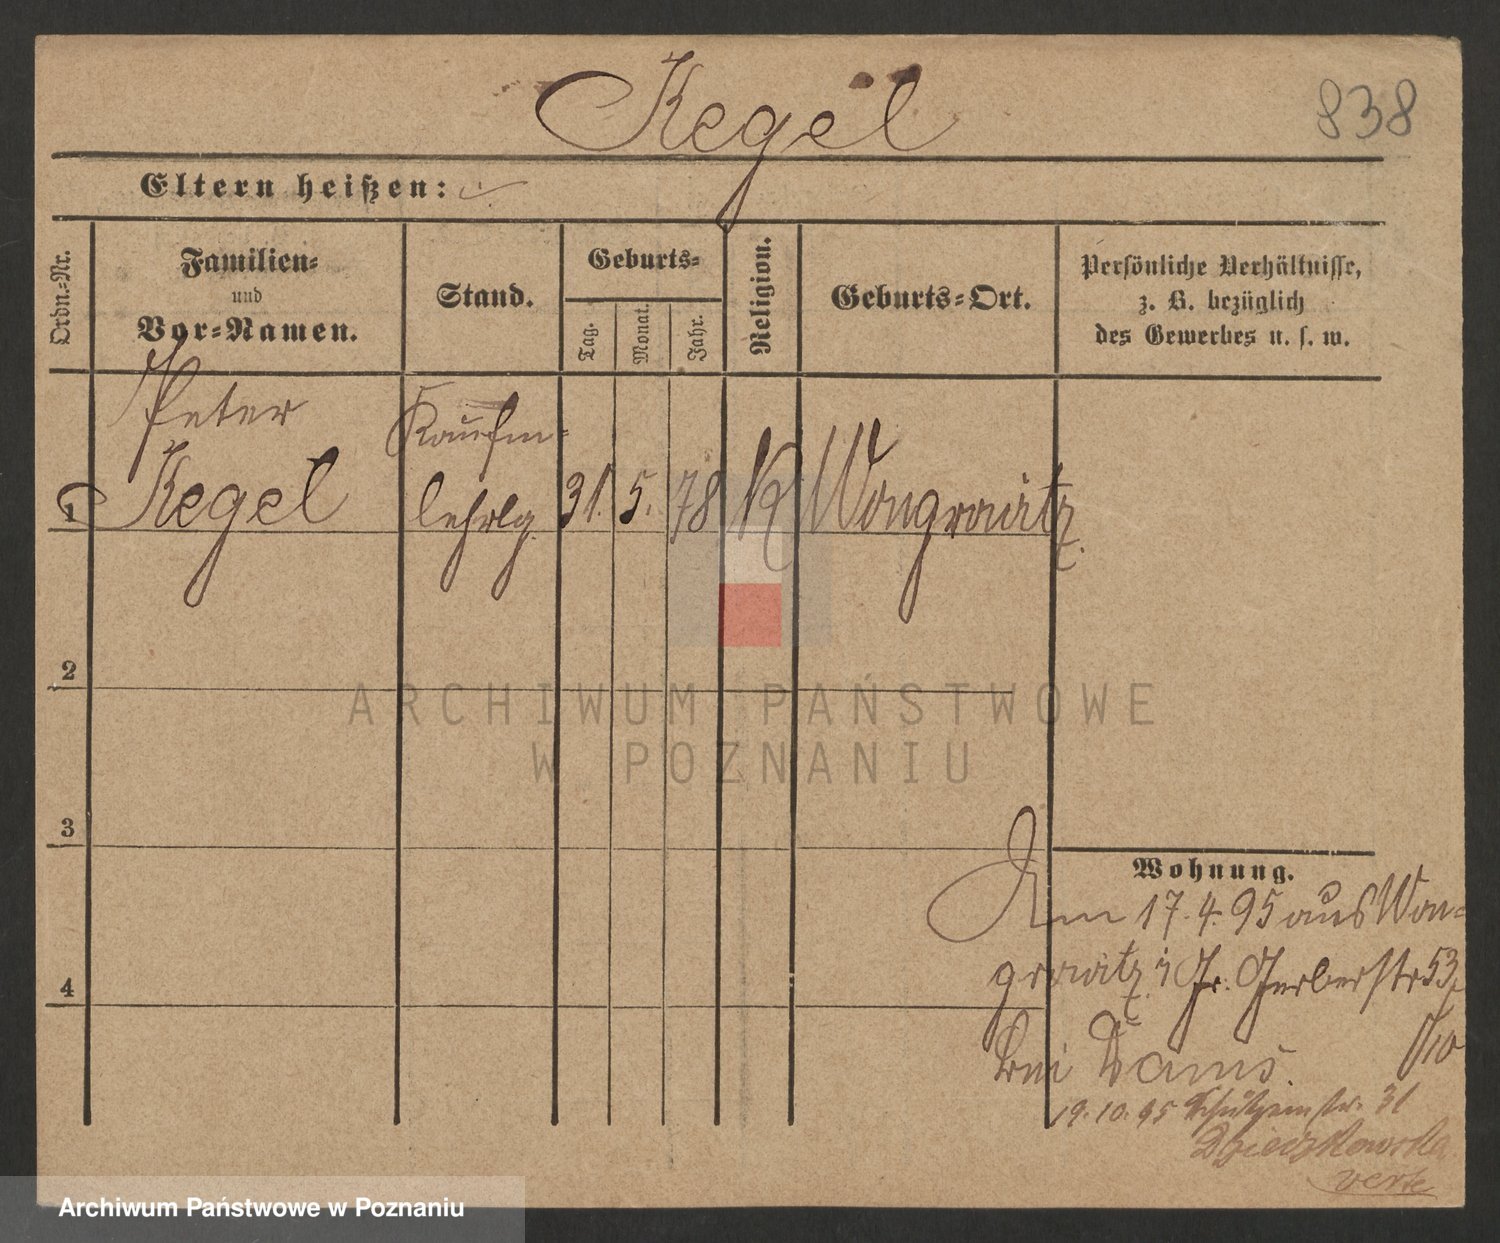 Kegel
838
Eltern heißen:
Ordn.-Nr.
Familien-
und
Vor-Namen.
Stand.
Geburts-
Tag.
Monat.
Jahr.
Religion.
Geburts-Ort.
Persönliche Verhältnisse,
z. B. bezüglich
des Gewerbes u. s. w.
Peter
Kaufm-
1 Kegel lehrlg. 31. 5. 78 K Wongrowitz.
2
ARCHIWUM PAŃSTWOWE
W POZNANIU
3
Wohnung.
Am 17.4.95 aus Won-
growitz, Gr. Gerberstr 53,
bei
19.10.95 Schützenstr. 31
Dzieczkowska
verte
4
Archiwum Państwowe w Poznaniu